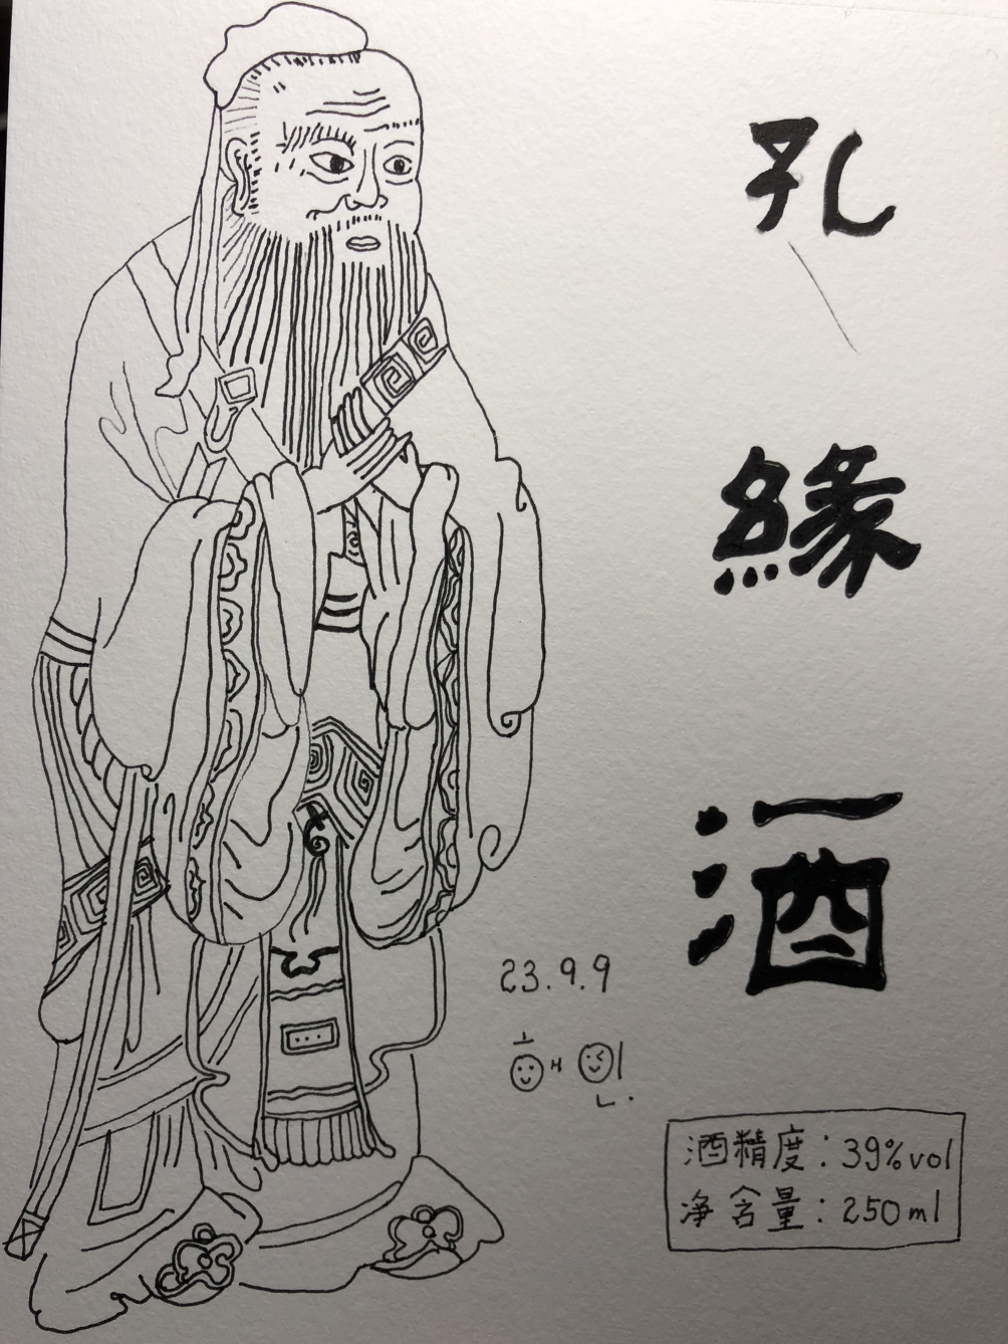 孔
緣
酒
23.9.9
해인
酒精度：39%vol
净含量：250ml